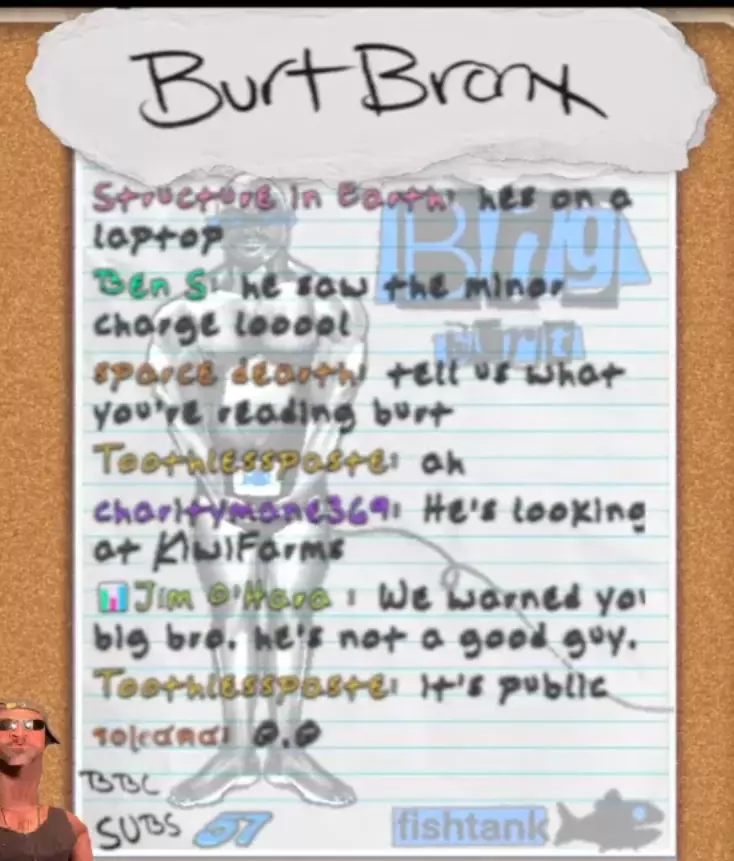 Burt Bronx
Structure in Earth: hes on a
laptop
Big
Ben S: he saw the minor
charge looool
Burt
sparce dearth: tell us what
you're reading burt
Toothlesspaste: ah
charitymane369: He's looking
at KiwiFarms
Jim O'Hara : We warned you
big bro. he's not a good guy.
Toothlesspaste: It's public
0.0
BBC
SUBS 57
fishtank